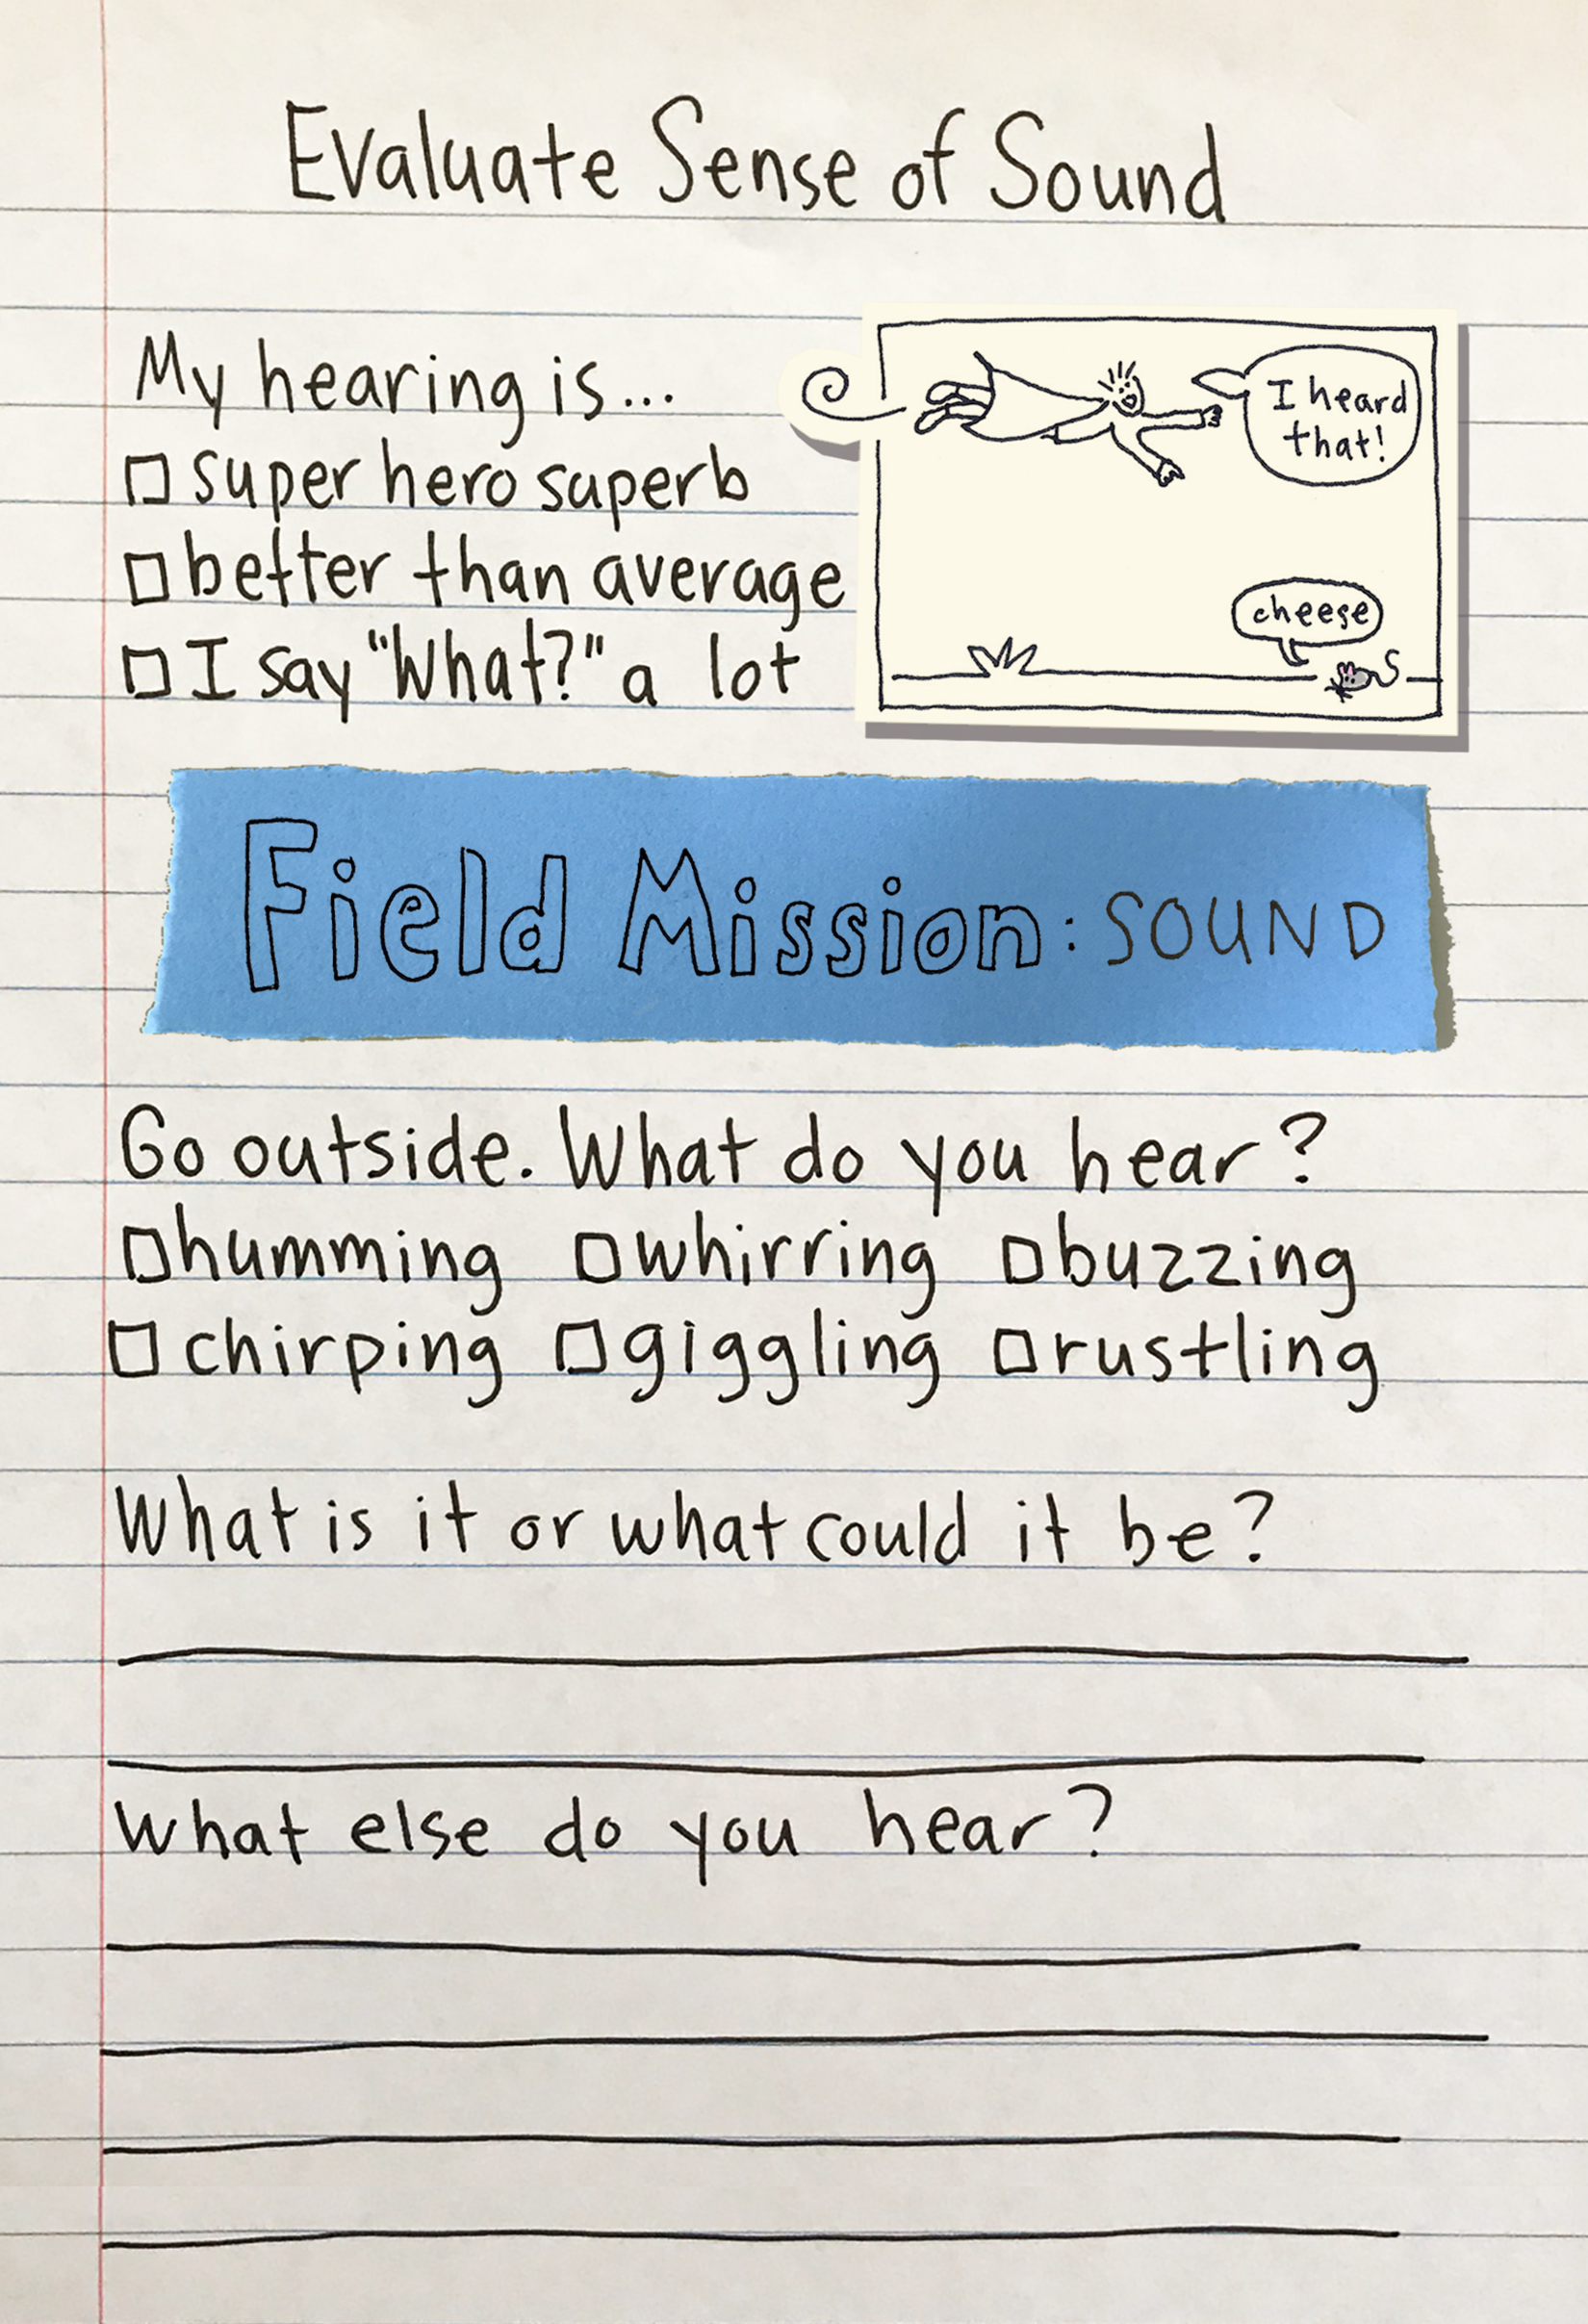 Evaluate Sense of Sound
My hearing is...
super hero superb
better than average
I say "What?" a lot
I heard
that!
cheese
Field Mission: SOUND
Go outside. What do you hear?
humming whirring buzzing
chirping giggling rustling
What is it or what could it be?
What else do you hear?